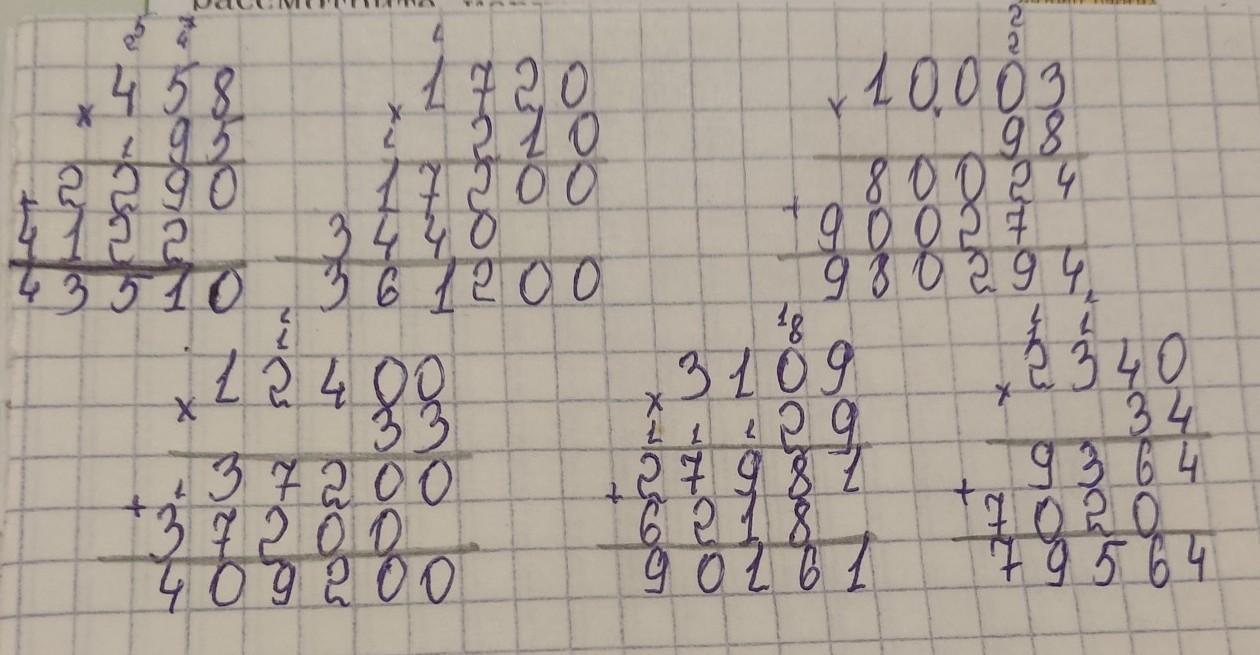 458
× 95
2290
+
4122
43510
1720
× 210
17200
3440
361200
10.003
× 98
80024
+
90027
980294
12400
× 33
37200
+
37200
409200
3109
× 29
27981
+
6218
90161
2340
× 34
9364
+
7020
79564